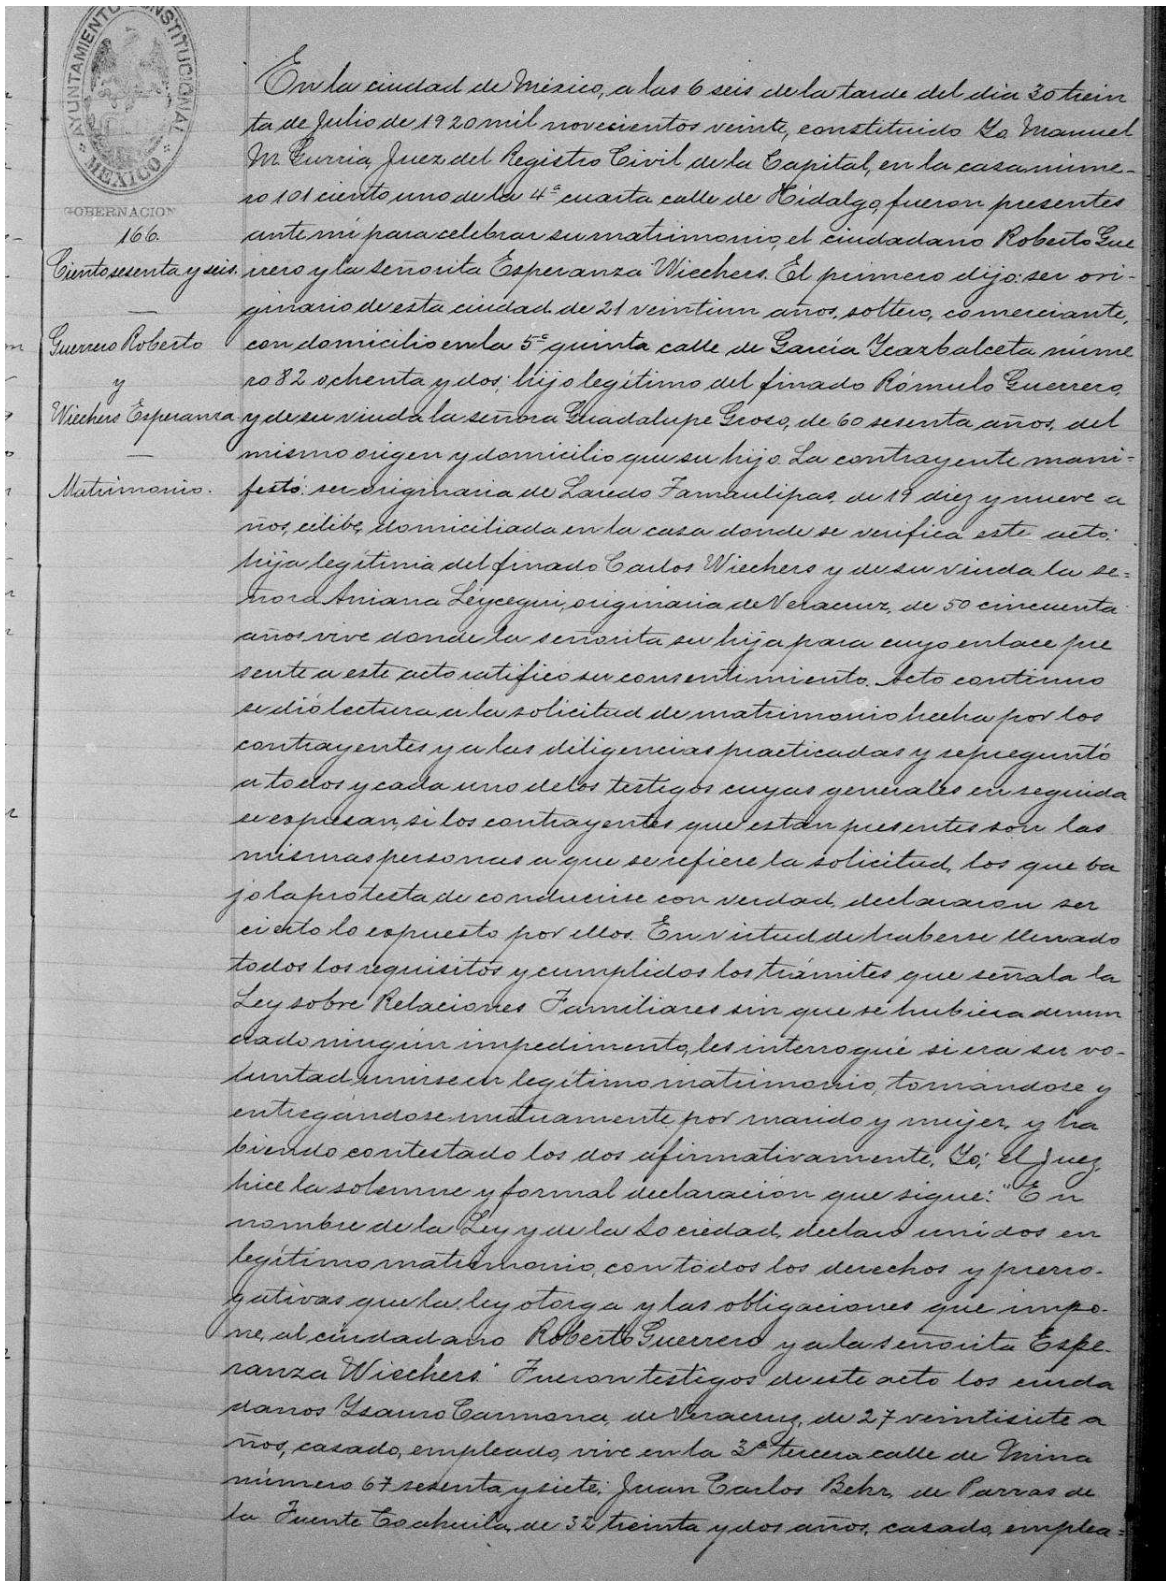 AYUNTAMIENTO CONSTITUCIONAL
MEXICO
GOBERNACION
166.
Ciento sesenta y seis.
Guerrero Roberto
y
Wiechers Esperanza
Matrimonio.
En la ciudad de México, a las 6 seis de la tarde del dia 30 trein
ta de Julio de 1920 mil novecientos veinte, constituido Yo Manuel
M. Gurria, Juez del Registro Civil de la Capital, en la casa núme-
ro 101 ciento uno de la 4ª cuarta calle de Hidalgo, fueron presentes
ante mi para celebrar su matrimonio, el ciudadano Roberto Gue
rrero y la señorita Esperanza Wiechers. El primero dijo: ser ori-
ginario de esta ciudad de 21 veintiun años, soltero, comerciante,
con domicilio en la 5ª quinta calle de Garcia Ycazbalceta núme
ro 82 ochenta y dos; hijo legitimo del finado Rómulo Guerrero,
y de su viuda la señora Guadalupe Groso, de 60 sesenta años, del
mismo origen y domicilio que su hijo. La contrayente mani-
festó: ser originaria de Laredo Tamaulipas, de 19 diez y nueve a
ños, célibe, domiciliada en la casa donde se verifica este acto:
hija legitima del finado Carlos Wiechers y de su viuda la se-
ñora Aniana Leycegui, originaria de Veracruz, de 50 cincuenta
años vive donde la señorita su hija para cuyo enlace pre
sente a este acto ratificó su consentimiento. Acto continuo
se dió lectura a la solicitud de matrimonio hecha por los
contrayentes y a las diligencias practicadas y repreguntó
a todos y cada uno de los testigos cuyas generales en seguida
se expresan, si los contrayentes que están presentes son las
mismas personas a que se refiere la solicitud, los que ba
jo la protesta de conducirse con verdad, declararon ser
cierto lo expuesto por ellos. En virtud de haberse llenado
todos los requisitos y cumplidos los trámites que señala la
Ley sobre Relaciones Familiares sin que se hubiera denun
ciado ningún impedimento, les interrogué si era su vo-
luntad unirse en legítimo matrimonio, tomándose y
entregándose mutuamente por marido y mujer, y ha
biendo contestado los dos afirmativamente, Yo, el Juez,
hice la solemne y formal declaración que sigue: "En
nombre de la Ley y de la Sociedad, declaro unidos en
legítimo matrimonio, con todos los derechos y prerro-
gativas que la ley otorga y las obligaciones que impo-
ne, al ciudadano Roberto Guerrero y a la señorita Espe-
ranza Wiechers." Fueron testigos de este acto los ciuda
danos Ysauro Carmona, de Veracruz, de 27 veintisiete a
ños, casado, empleado, vive en la 3ª tercera calle de Mina
número 67 sesenta y siete; Juan Carlos Behr, de Parras de
la Fuente Coahuila, de 32 treinta y dos años, casado, emplea=